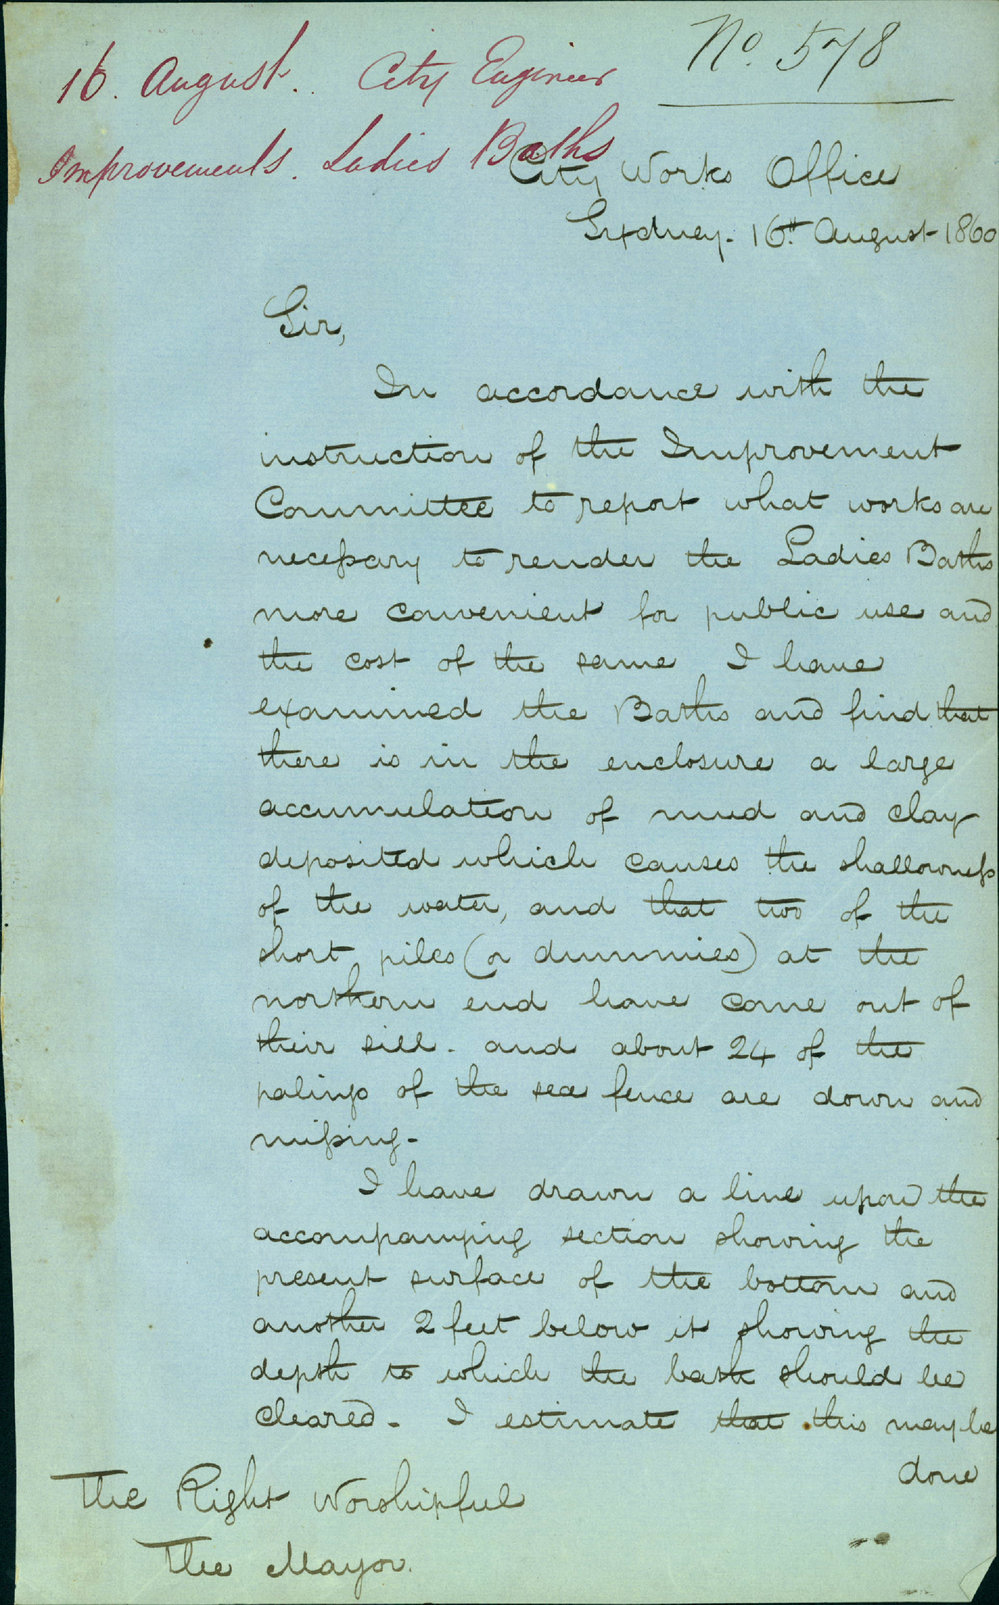 No. 578
16. August. City Engineer
Improvements. Ladies Baths
City Works Office
Sydney. 16th August 1860
Sir,
In accordance with the
instruction of the Improvement
Committee to report what works are
necessary to render the Ladies Baths
more convenient for public use and
the cost of the same I have
examined the Baths and find that
there is in the enclosure a large
accumulation of mud and clay
deposited which causes the shallowness
of the water, and that two of the
short piles (or dummies) at the
northern end have come out of
their sill. and about 24 of the
palings of the sea fence are down and
missing-
I have drawn a line upon the
accompanying section showing the
present surface of the bottom and
another 2 feet below it showing the
depth to which the bath should be
cleared- I estimate that this may be
done
The Right Worshipful
The Mayor.